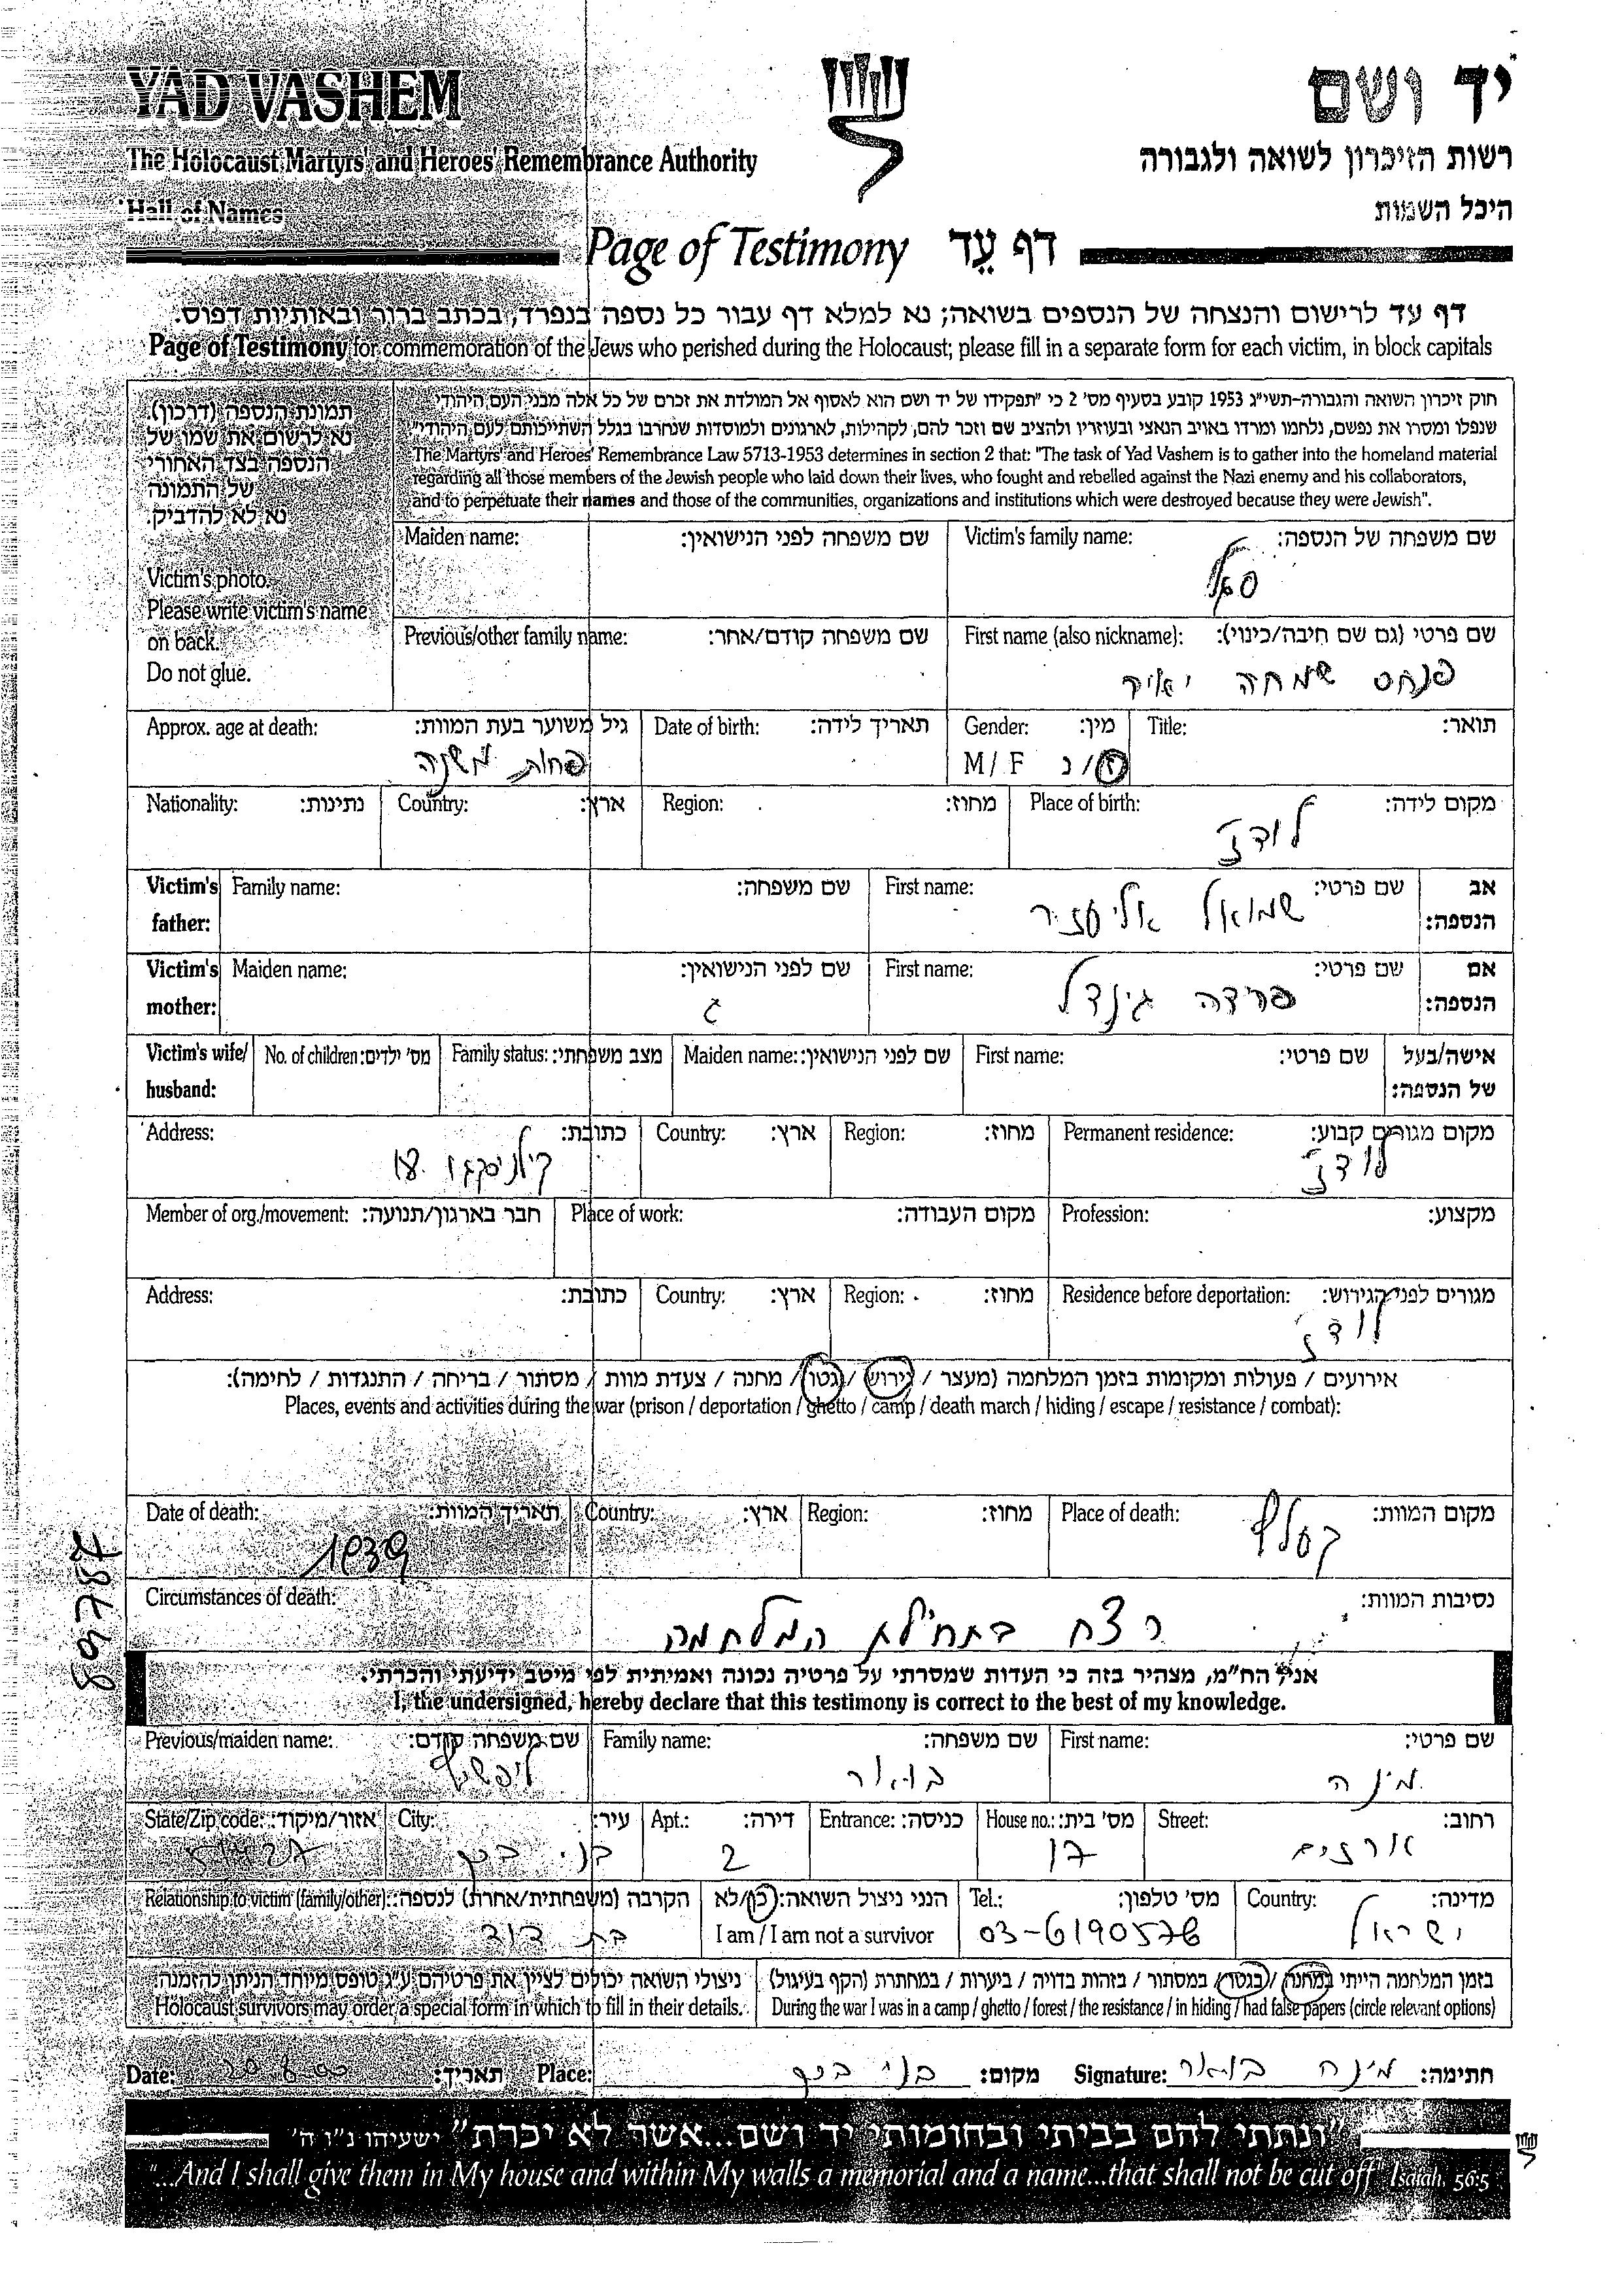 YAD VASHEM
יד ושם
The Holocaust Martyrs' and Heroes' Remembrance Authority
רשות הזיכרון לשואה ולגבורה
Hall of Names
היכל השמות
Page of Testimony דף עֵד
דף עד לרישום והנצחה של הנספים בשואה; נא למלא דף עבור כל נספה בנפרד, בכתב ברור ובאותיות דפוס.
Page of Testimony for commemoration of the Jews who perished during the Holocaust; please fill in a separate form for each victim, in block capitals
חוק זיכרון השואה והגבורה-תשי"ג 1953 קובע בסעיף מס' 2 כי "תפקידו של יד ושם הוא לאסוף אל המולדת את זכרם של כל אלה מבני העם היהודי
שנפלו ומסרו את נפשם, נלחמו ומרדו באויב הנאצי ובעוזריו ולהציב שם וזכר להם, לקהילות, לארגונים ולמוסדות שנחרבו בגלל השתייכותם לעם היהודי"
The Martyrs' and Heroes' Remembrance Law 5713-1953 determines in section 2 that: "The task of Yad Vashem is to gather into the homeland material
regarding all those members of the Jewish people who laid down their lives, who fought and rebelled against the Nazi enemy and his collaborators,
and to perpetuate their names and those of the communities, organizations and institutions which were destroyed because they were Jewish".
תמונת הנספה (דרכון).
נא לרשום את שמו של
הנספה בצד האחורי
של התמונה
נא לא להדביק.
Victim's photo.
Please write victim's name
on back.
Do not glue.
שם משפחה של הנספה: Victim's family name: שם משפחה לפני הנישואין: Maiden name:
שם פרטי (גם שם חיבה/כינוי): First name (also nickname): שם משפחה קודם/אחר: Previous/other family name:
פנחס שמחה יאיר
תואר: Title: מין: Gender: תאריך לידה: Date of birth: גיל משוער בעת המוות: Approx. age at death:
ז/נ M/F פחות משנה
מקום לידה: Place of birth: מחוז: Region: ארץ: Country: נתינות: Nationality:
לודז
אב שם פרטי: First name: שם משפחה: Family name: Victim's
הנספה: שמואל אליעזר father:
אם שם פרטי: First name: שם לפני הנישואין: Maiden name: Victim's
הנספה: פרידה גינדל mother:
אישה/בעל שם פרטי: First name: שם לפני הנישואין: Maiden name: מצב משפחתי: Family status: מס' ילדים: No. of children: Victim's wife/
של הנספה: husband:
מקום מגורים קבוע: Permanent residence: מחוז: Region: ארץ: Country: כתובת: Address:
לודז
מקצוע: Profession: מקום העבודה: Place of work: חבר בארגון/תנועה: Member of org./movement:
מגורים לפני הגירוש: Residence before deportation: מחוז: Region: ארץ: Country: כתובת: Address:
לודז
אירועים / פעולות ומקומות בזמן המלחמה (מעצר / גירוש / גטו / מחנה / צעדת מוות / מסתור / בריחה / התנגדות / לחימה):
Places, events and activities during the war (prison / deportation / ghetto / camp / death march / hiding / escape / resistance / combat):
מקום המוות: Place of death: מחוז: Region: ארץ: Country: תאריך המוות: Date of death:
1939
נסיבות המוות: Circumstances of death:
רצח בתחילת המלחמה
809787
אני, הח"מ, מצהיר בזה כי העדות שמסרתי על פרטיה נכונה ואמיתית לפי מיטב ידיעתי והכרתי.
I, the undersigned, hereby declare that this testimony is correct to the best of my knowledge.
שם פרטי: First name: שם משפחה: Family name: שם משפחה קודם: Previous/maiden name:
מינה בואור ליפשיץ
רחוב: Street: מס' בית: House no.: כניסה: Entrance: דירה: Apt.: עיר: City: אזור/מיקוד: State/Zip code:
ארזים 17 2 בני ברק
מדינה: Country: מס' טלפון: Tel.: הנני ניצול השואה: כן/לא הקרבה (משפחתית/אחרת) לנספה: Relationship to victim (family/other):
ישראל 03-6190576 I am / I am not a survivor בת דוד
בזמן המלחמה הייתי במחנה / בגטו / במסתור / בזהות בדויה / ביערות / במחתרת (הקף בעיגול) ניצולי השואה יכולים לציין את פרטיהם ע"ג טופס מיוחד הניתן להזמנה.
During the war I was in a camp / ghetto / forest / the resistance / in hiding / had false papers (circle relevant options) Holocaust survivors may order a special form in which to fill in their details.
חתימה: מינה בואור Signature: מקום: בני ברק Place: תאריך: Date:
"ונתתי להם בביתי ובחומותי יד ושם...אשר לא יכרת" ישעיהו נ"ו ה'
"...And I shall give them in My house and within My walls a memorial and a name...that shall not be cut off" Isaiah, 56:5